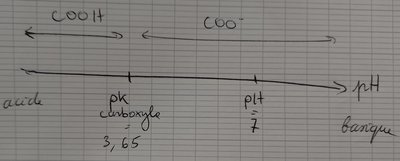 COOH COO⁻
pH
acide pk pH basique
carboxyle = 
= 7
3,65